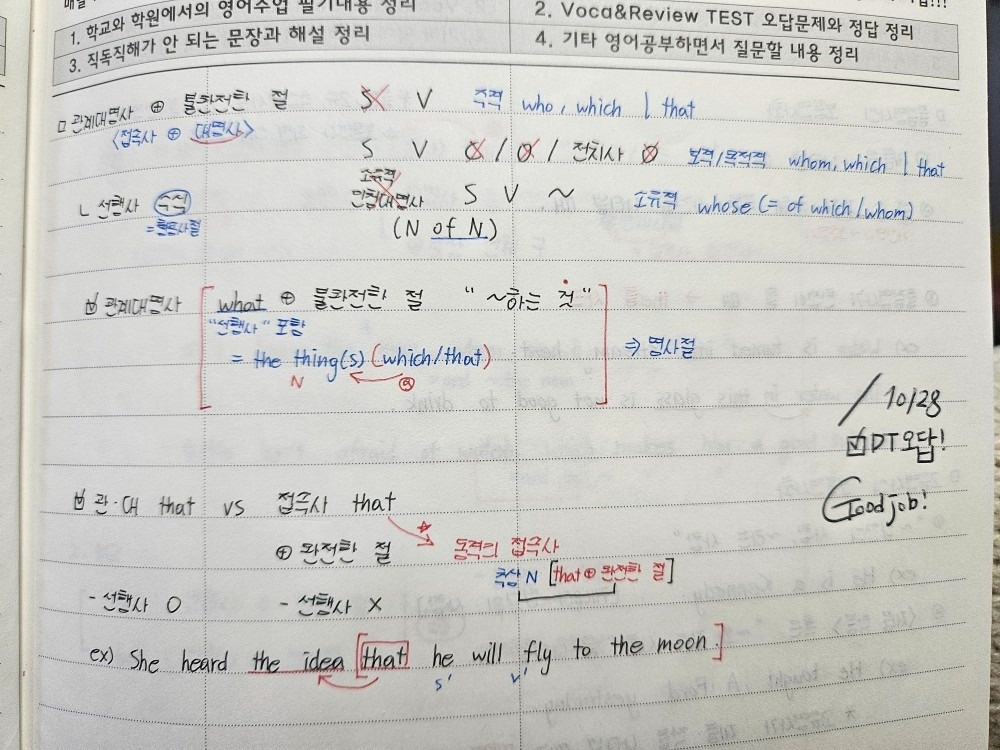 1. 학교와 학원에서의 영어수업 필기내용 정리
2. Voca&Review TEST 오답문제와 정답 정리
3. 직독직해가 안 되는 문장과 해설 정리
4. 기타 영어공부하면서 질문할 내용 정리
관계대명사 ⊕ 불완전한 절 S V 주격 who, which / that
<접속사 ⊕ 대명사>
S V O / O / 전치사 O 보격/목적격 whom, which / that
소유격
ㄴ 선행사 수식 인칭대명사 S V ~ 소유격 whose (= of which / whom)
=형용사절 (N of N)
관계대명사 what ⊕ 불완전한 절 "~하는 것"
"선행사" 포함
= the thing(s) (which/that) ⇒ 명사절
N ⓐ
/ 10/28
☑DT오답!
Good job!
관·대 that vs 접속사 that
⊕ 완전한 절 ☆ 동격의 접속사
추상 N [that ⊕ 완전한 절]
- 선행사 O - 선행사 X
ex) She heard the idea [that he will fly to the moon.]
s' v'